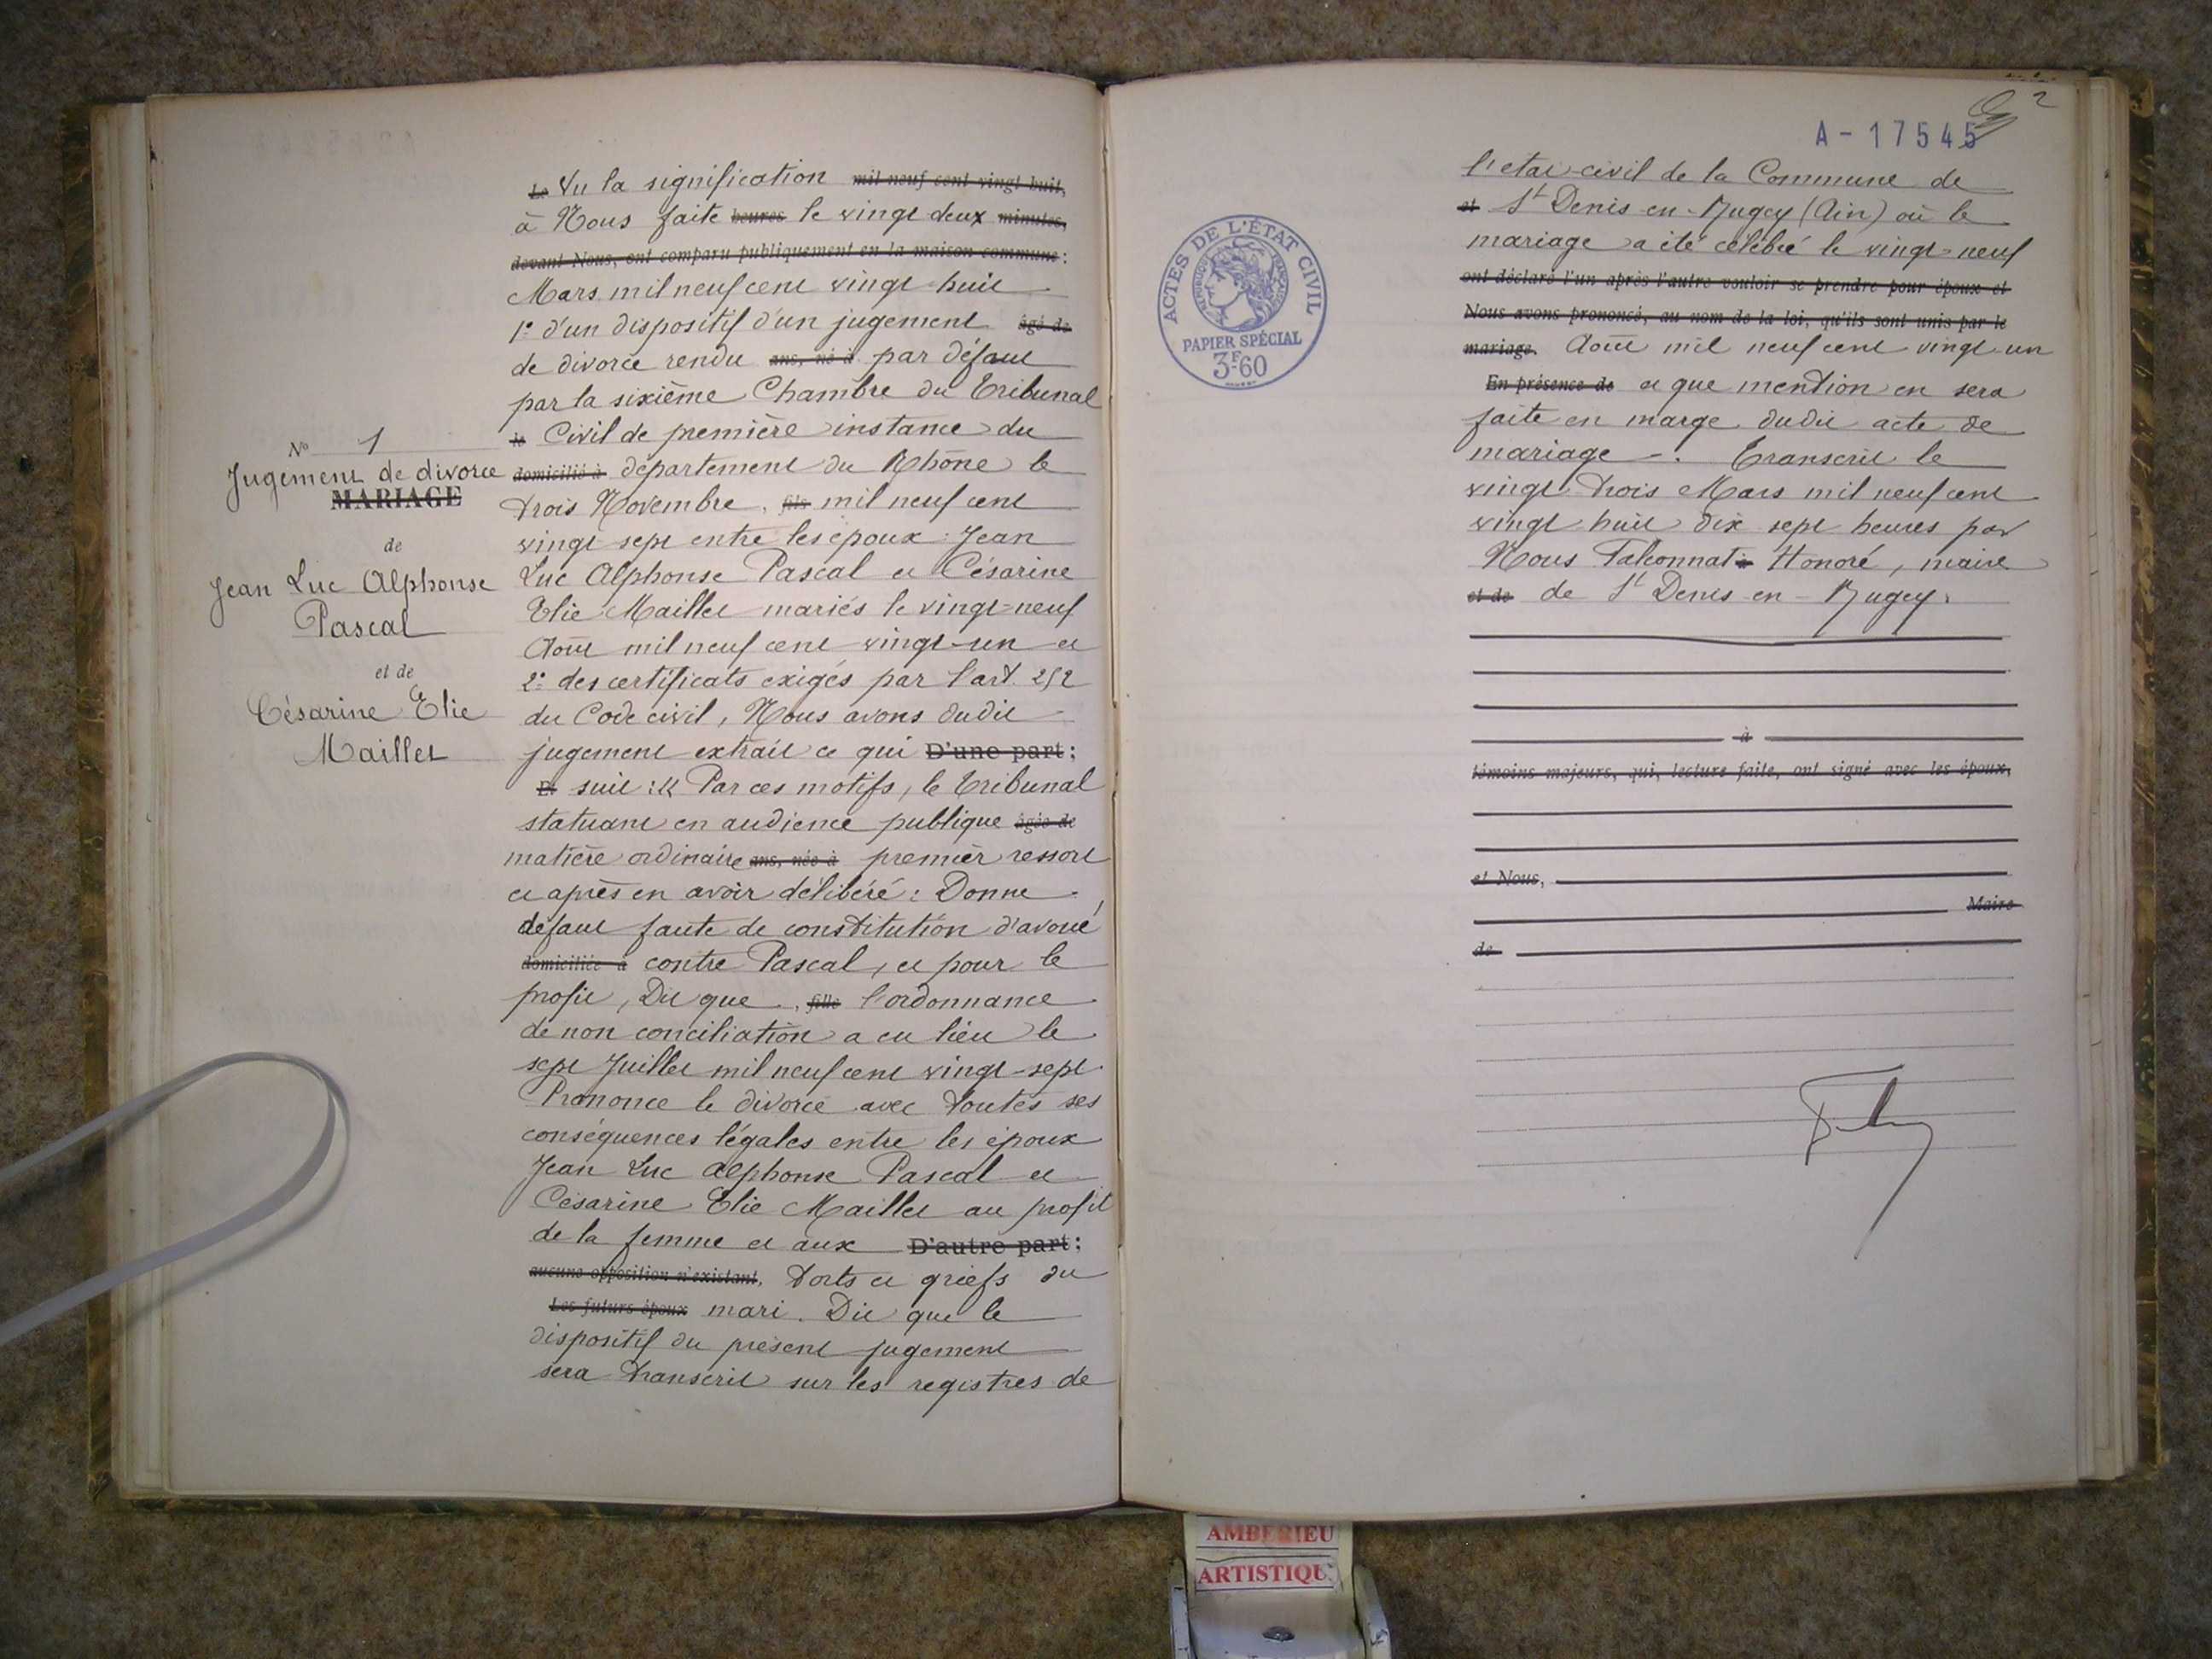 N° 1
Jugement de divorce
MARIAGE
de
Jean Luc Alphonse
Pascal
et de
Césarine Elie
Maillet
Le Vu la signification mil neuf cent vingt huit,
à Nous faite heures le vingt deux minutes,
devant Nous, ont comparu publiquement en la maison commune :
Mars mil neuf cent vingt-huit
1° d'un dispositif d'un jugement âgé de
de divorce rendu ans, né à par défaut
par la sixième Chambre du Tribunal
le Civil de première instance du
domicilié à département du Rhône le
trois Novembre, fils mil neuf cent
vingt sept entre les époux : Jean
Luc Alphonse Pascal et Césarine
Elie Maillet mariés le vingt-neuf
Août mil neuf cent vingt-un et
2° des certificats exigés par l'art. 252
du Code civil, Nous avons dudit
jugement extrait ce qui D'une part ;
Et suit : « Par ces motifs, le Tribunal
statuant en audience publique âgée de
matière ordinaire ans, née à premier ressort
et après en avoir délibéré : Donne
défaut faute de constitution d'avoué
domiciliée à contre Pascal, et pour le
profit, Dit que , fille l'ordonnance
de non conciliation a eu lieu le
sept Juillet mil neuf cent vingt-sept.
Prononce le divorce avec toutes ses
conséquences légales entre les époux
Jean Luc Alphonse Pascal et
Césarine Elie Maillet au profit
de la femme et aux D'autre part ;
aucune opposition n'existant, torts et griefs du
Les futurs époux mari. Dit que le
dispositif du présent jugement
sera transcrit sur les registres de
2
A - 17545
ACTES DE L'ÉTAT CIVIL
RÉPUBLIQUE FRANÇAISE
PAPIER SPÉCIAL
3F.60
l'état-civil de la Commune de
et St Denis-en-Bugey (Ain) où le
mariage a été célébré le vingt-neuf
ont déclaré l'un après l'autre vouloir se prendre pour époux et
Nous avons prononcé, au nom de la loi, qu'ils sont unis par le
mariage. Août mil neuf cent vingt-un
En présence de et que mention en sera
faite en marge dudit acte de
mariage -. Transcrit le
vingt-trois Mars mil neuf cent
vingt huit dix sept heures par
Nous Falconnat à Honoré, maire
et de de St Denis-en-Bugey.
à
témoins majeurs, qui, lecture faite, ont signé avec les époux,
et Nous,
Maire
de
AMBERIEU
ARTISTIQU